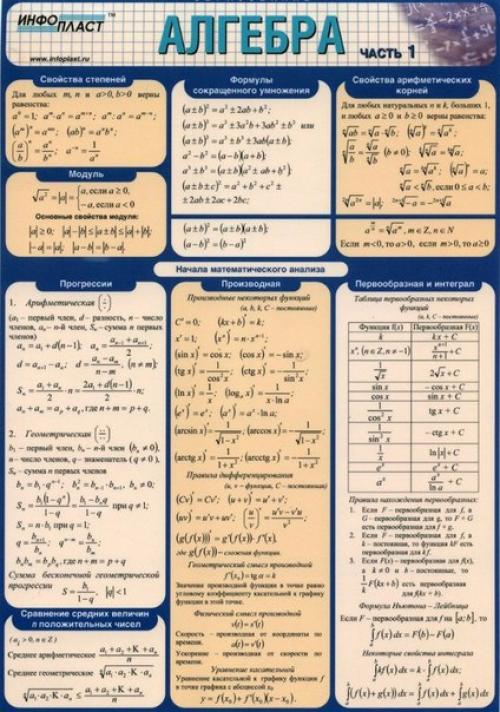 ИНФОПЛАСТ™
www.infoplast.ru
АЛГЕБРА
ЧАСТЬ 1
Свойства степеней
Для любых m, n и a>0, b>0 верны
равенства:
Модуль
√a² = |a| = { a, если a ≥ 0, −a, если a < 0
Основные свойства модуля:
|a| ≥ 0; |a| − |b| ≤ |a ± b| ≤ |a| + |b|;
|−a| = |a|; |a − b| = |b − a|.
Формулы
сокращенного умножения
(a ± b)² = a² ± 2ab + b²;
(a ± b)³ = a³ ± 3a²b + 3ab² ± b³ или
(a ± b)³ = a³ ± b³ ± 3ab(a ± b);
a² − b² = (a − b)(a + b);
(a ± b + c)² = a² + b² + c² ±
± 2ab ± 2ac + 2bc;
(a ± b)² = (a ± b)(a ± b);
(a − b)² = (b − a)²
Свойства арифметических
корней
Для любых натуральных n и k, больших 1,
и любых a ≥ 0 и b ≥ 0 верны равенства:
ⁿ√a < ⁿ√b, если 0 ≤ a < b;
, m ∈ Z, n ∈ N
Если m<0, то a>0, если m>0, то a≥0
Начала математического анализа
Прогрессии
1. Арифметическая (÷)
(a₁ – первый член, d – разность, n – число
членов, aₙ – n-й член, Sₙ – сумма n первых
членов)
aₙ = a₁ + d(n − 1); aₙ = (aₙ₋₁ + aₙ₊₁)/2;
d = aₙ₊₁ − aₙ; d = (aₙ − aₘ)/(n − m), (n ≠ m)
Sₙ = (a₁ + aₙ)/2 · n = (2a₁ + d(n − 1))/2 · n;
aₙ + aₘ = aₚ + a_q, где n + m = p + q.
2. Геометрическая
b₁ – первый член, bₙ – n-й член (bₙ ≠ 0),
n – число членов, q – знаменатель (q ≠ 0),
Sₙ – сумма n первых членов
bₙ = b₁qⁿ⁻¹; bₙ² = bₙ₋₁ · bₙ₊₁, bₙ ≠ 0;
Sₙ = b₁(1 − qⁿ)/(1 − q) = (b₁ − bₙq)/(1 − q) при q ≠ 1;
Sₙ = n · b₁ при q = 1;
где n + m = p + q
Сумма бесконечной геометрической
прогрессии S = b₁/(1 − q), |q| < 1
Сравнение средних величин
n положительных чисел
Среднее арифметическое (a₁ + a₂ + K + aₙ)/n
Среднее геометрическое ⁿ√(a₁ · a₂ · K · aₙ)
ⁿ√(a₁ · a₂ · K · aₙ) ≤ (a₁ + a₂ + K + aₙ)/n
Производная
Производные некоторых функций
(a, b, k, C – постоянные)
C′ = 0; (kx + b)′ = k;
x′ = 1; (xⁿ)′ = n · xⁿ⁻¹;
(sin x)′ = cos x; (cos x)′ = −sin x;
(tg x)′ = 1/cos² x; (ctg x)′ = −1/sin² x;
(ln x)′ = 1/x; (logₐ x)′ = 1/(x · ln a);
(eˣ)′ = eˣ; (aˣ)′ = aˣ · ln a;
(arcsin x)′ = 1/√(1 − x²); (arccos x)′ = −1/√(1 − x²);
(arctg x)′ = 1/(1 + x²); (arcctg x)′ = −1/(1 + x²)
Правила дифференцирования
(u, v – функции, C – постоянные)
(Cv)′ = Cv′; (u + v)′ = u′ + v′;
(uv)′ = u′v + uv′; (u/v)′ = (u′v − v′u)/v²;
(g(f(x)))′ = g′(f(x)) · f′(x),
где g(f(x)) – сложная функция.
Геометрический смысл производной
f′(x₀) = tg α = k
Значение производной функции в точке равно
угловому коэффициенту касательной к графику
функции в этой точке.
Физический смысл производной
v(t) = s′(t)
Скорость – производная от координаты по
времени. a(t) = v′(t)
Ускорение – производная от скорости по
времени.
Уравнение касательной
Уравнение касательной к графику функции f
в точке графика с абсциссой x₀
y = f(x₀) + f′(x₀)(x − x₀).
Первообразная и интеграл
Таблица первообразных некоторых
функций
(a, k, C – постоянные)
Функция f(x) Первообразная F(x)
k kx + C
xⁿ, (n ∈ Z, n ≠ −1) xⁿ⁺¹/(n + 1) + C
1/√x 2√x + C
sin x − cos x + C
cos x sin x + C
1/cos² x tg x + C
1/sin² x −ctg x + C
1/x ln|x| + C
eˣ eˣ + C
aˣ aˣ/ln a + C
Правила нахождения первообразных:
1. Если F – первообразная для f, а
G – первообразная для g, то F + G
есть первообразная для f + g.
2. Если F – первообразная для f, а
k – постоянная, то функция kF есть
первообразная для kf.
3. Если F(x) – первообразная для f(x),
а k ≠ 0 и b – постоянные, то
1/k F(kx + b) есть первообразная
для f(kx + b).
Формула Ньютона – Лейбница
Если F – первообразная для f на [a; b], то
∫f(x)dx = F(b) − F(a)
Некоторые свойства интеграла
∫kf(x)dx = k · ∫f(x)dx;
∫(f(x) + g(x))dx = ∫f(x)dx + ∫g(x)dx